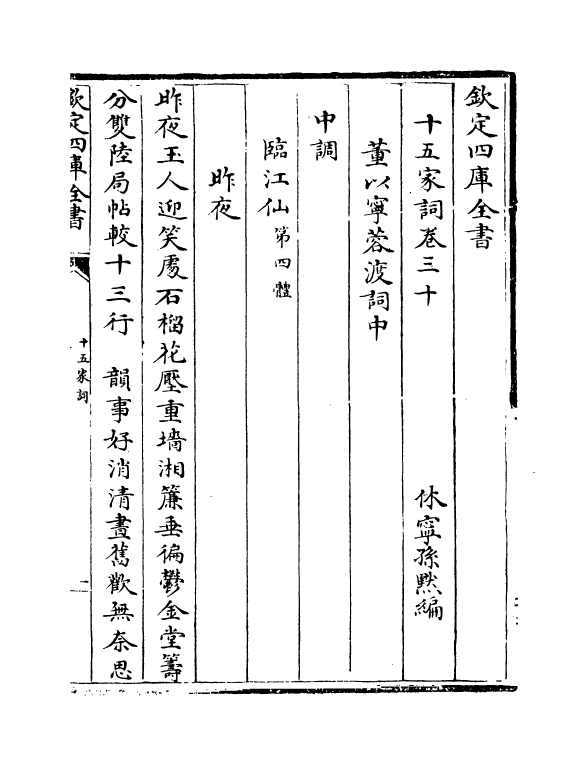 欽定四庫全書
十五家詞卷三十
休寧孫默編
董以寧蓉渡詞中
中調
臨江仙第四體
昨夜
昨夜玉人迎笑處石榴花壓重墻湘簾垂徧鬱金堂籌
分雙陸局帖較十三行　韻事好消清晝舊歡無奈思
欽定四庫全書
十五家詞